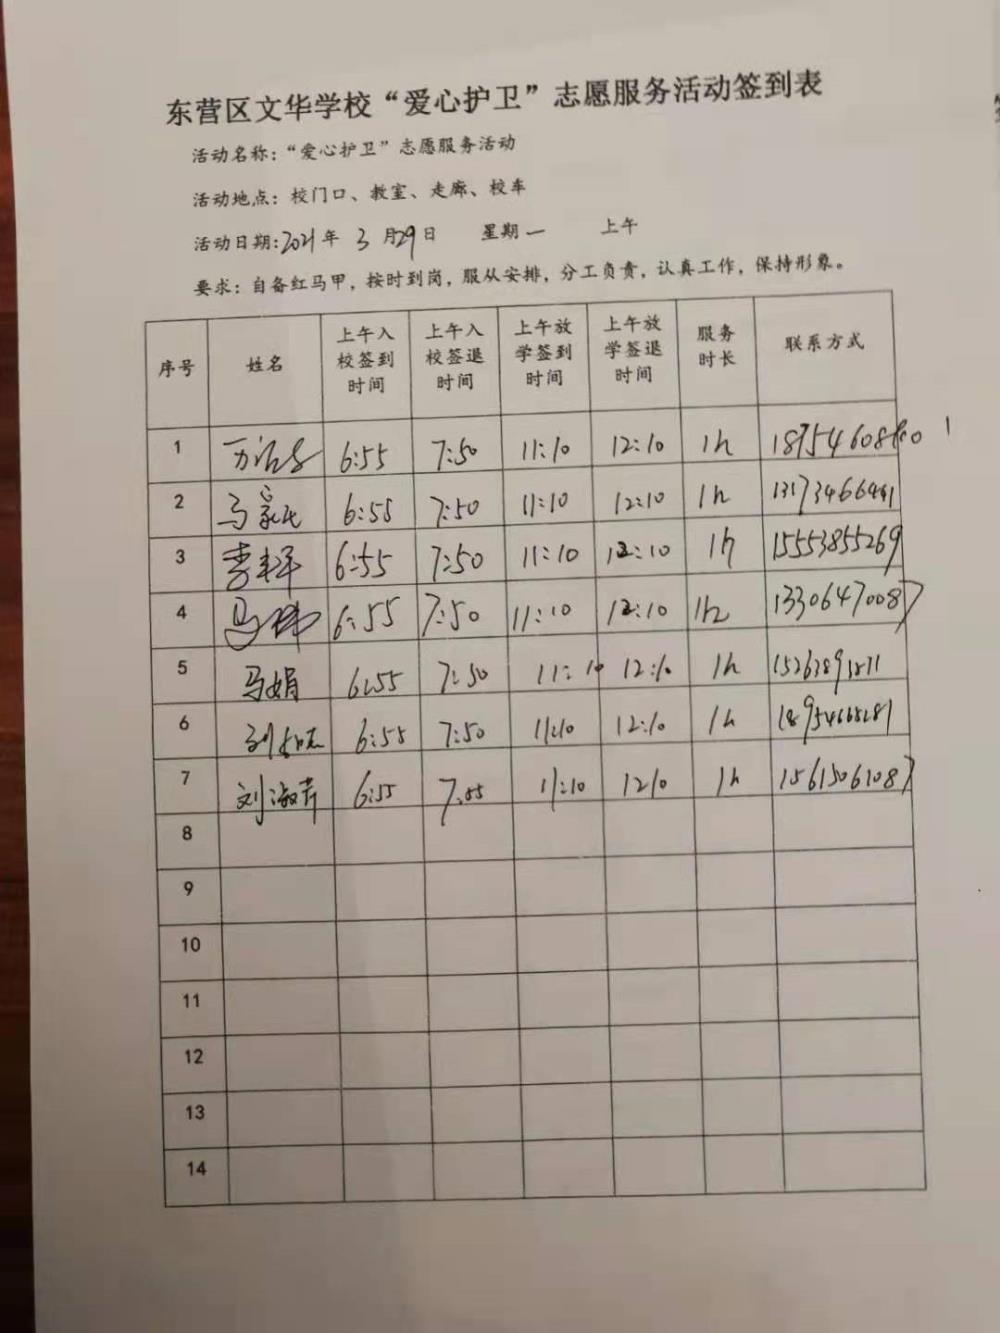 东营区文华学校“爱心护卫”志愿服务活动签到表
活动名称：“爱心护卫”志愿服务活动
活动地点：校门口、教室、走廊、校车
活动日期：2021年 3 月29日 星期一 上午
要求：自备红马甲，按时到岗，服从安排，分工负责，认真工作，保持形象。
序号 姓名 上午入校签到时间 上午入校签退时间 上午放学签到时间 上午放学签退时间 服务时长 联系方式
1 6:55 7:50 11:10 12:10 1h
2 马 6:55 7:50 11:10 12:10 1h
3 李 6:55 7:50 11:10 12:10 1h 15553855269
4 马 6:55 7:50 11:10 12:10 1h 13306470087
5 马娟 6:55 7:50 11:10 12:10 1h
6 刘 6:55 7:50 11:10 12:10 1h
7 刘淑芹 6:55 7:55 11:10 1210 1h 15615061087
8
9
10
11
12
13
14